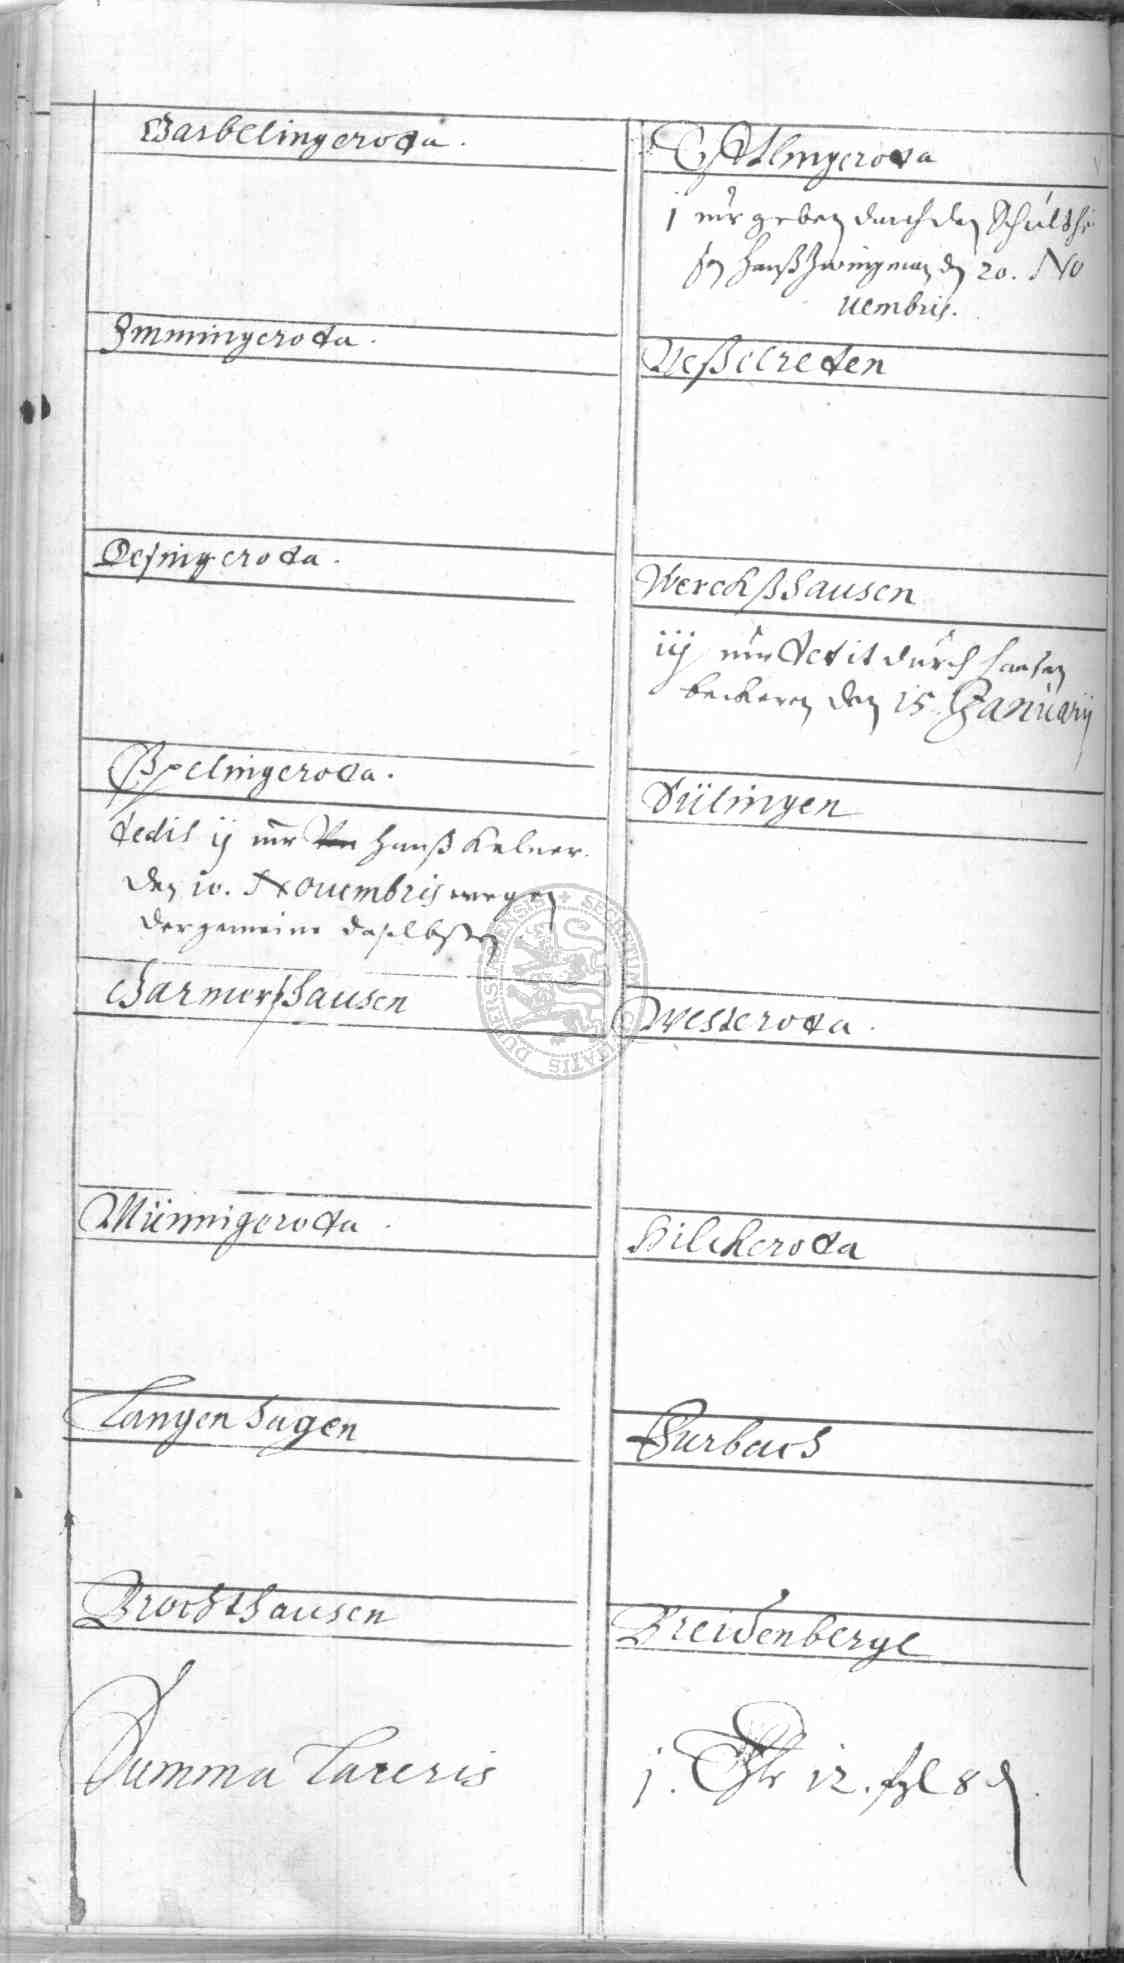 Gasbelingeroda.
Immingeroda.
Desingeroda.
Eßpelingeroda.
dedit ij mr Hanß Kelner.
den 10. Nouembris wegen
der gemeine daselbsten
Garmershausen
Münnigeroda.
Langenhagen
Brochthausen
Summa Lateris
Tastlingeroda
j mr geben durch den Schulthei
ßen Hanß Zwingman den 20. No
uembris.
Neßelreden
Werckßhausen
iij mr dedit durch Hansen
beckeren den 15 Januarij
Düilingen
Westeroda.
Hilckeroda
Furbach
Breidenberge
j. Thlr 12. ßgl 8 ₰
SECRETUM CIVITATIS DUDERSTADENSIS